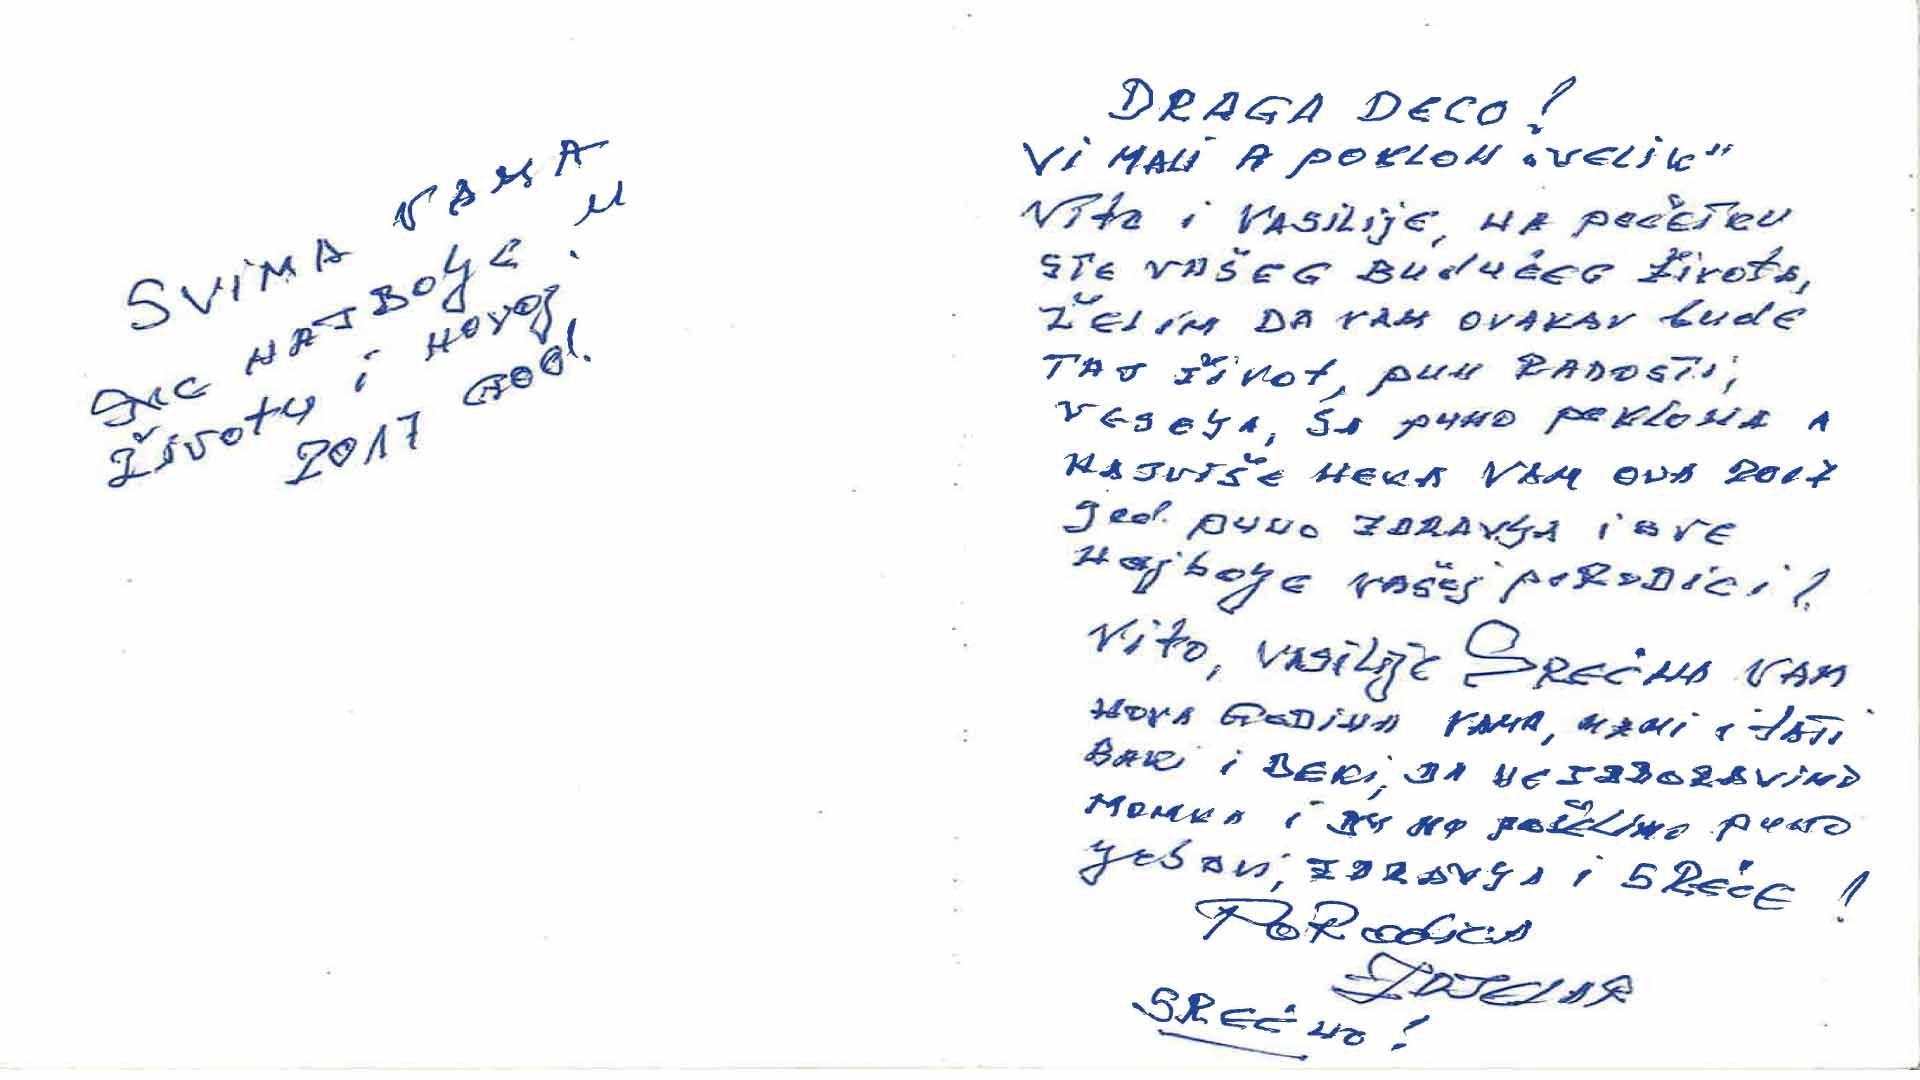 SVIMA VAMA
SVE NAJBOLJE U
ŽIVOTU i NOVOJ
2017 GOD!
DRAGA DECO!
Vi MALI A POKLON „VELIK"
Vito i VASILIJE, NA POČETKU
STE VAŠEG BUDUĆEG ŽIVOTA,
ŽELIM DA VAM OVAKAV bude
TAJ ŽIVOT, PUN RADOSTI,
VESELJA, SA PUNO POKLONA A
NAJVIŠE NEKA VAM OVA 2017
god. PUNO ZDRAVLJA i SVE
Najbolje VAŠOJ PORODICI!
Vito, VASILIJE SREĆNA VAM
NOVA GODINA VAMA, MAMI i TATI
BAKI i DEKI, DA NE ZABORAVIMO
MOMKA i POŽELIMO PUNO
LJUBAVI, ZDRAVLJA i SREĆE!
PORODICA
SREĆNO!